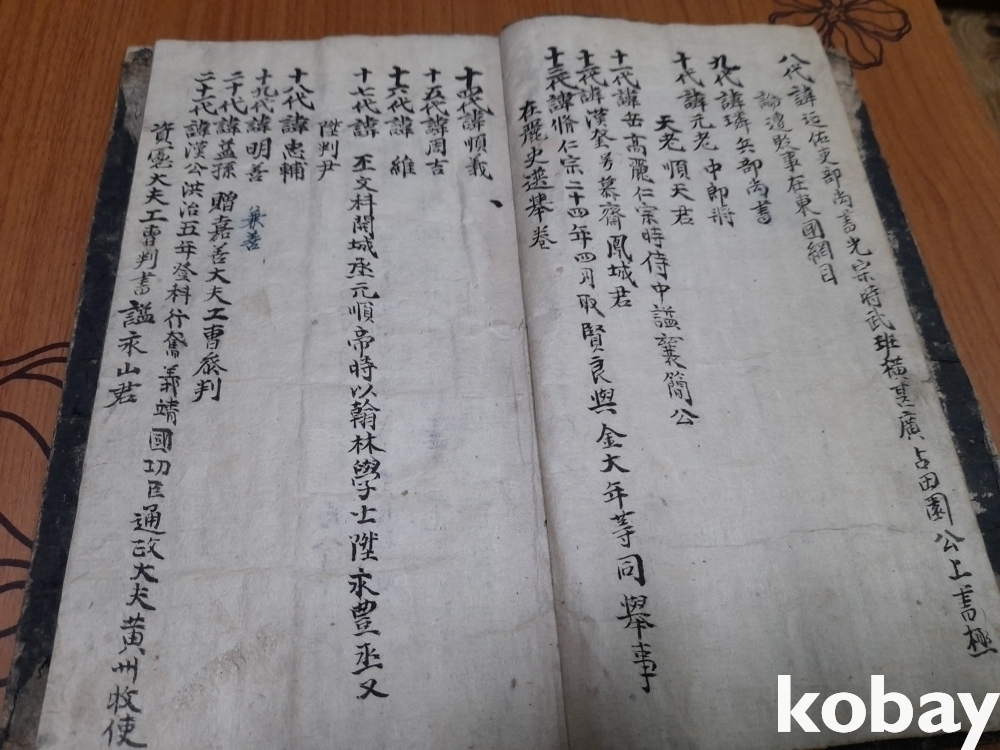 八代諱 廷佑吏部尚書光宗時武班橫甚廣占田園公上書極
論遺敗事在東國網目
九代諱璘兵部尚書
十代諱元老 中郎將
天老 順天君
十一代諱 高麗仁宗時侍中諡襄簡公
十二代諱漢 慕齋鳳城君
十三代諱脩仁宗二十四年四月取賢良與金大年等同舉事
在麗史選擧卷
十四代諱順義
十五代諱周吉
十六代諱 維
十七代諱 丕文科開城丞元順帝時以翰林學士陞永豊丞又
陞判尹
十八代諱忠輔
十九代諱明善
兼善
二十代諱藎孫 贈嘉善大夫工曹參判
二十一代諱漢公洪治五年登科行奮義靖國功臣通政大夫黃州牧使
資憲大夫工曹判書 諡永山君
kobay